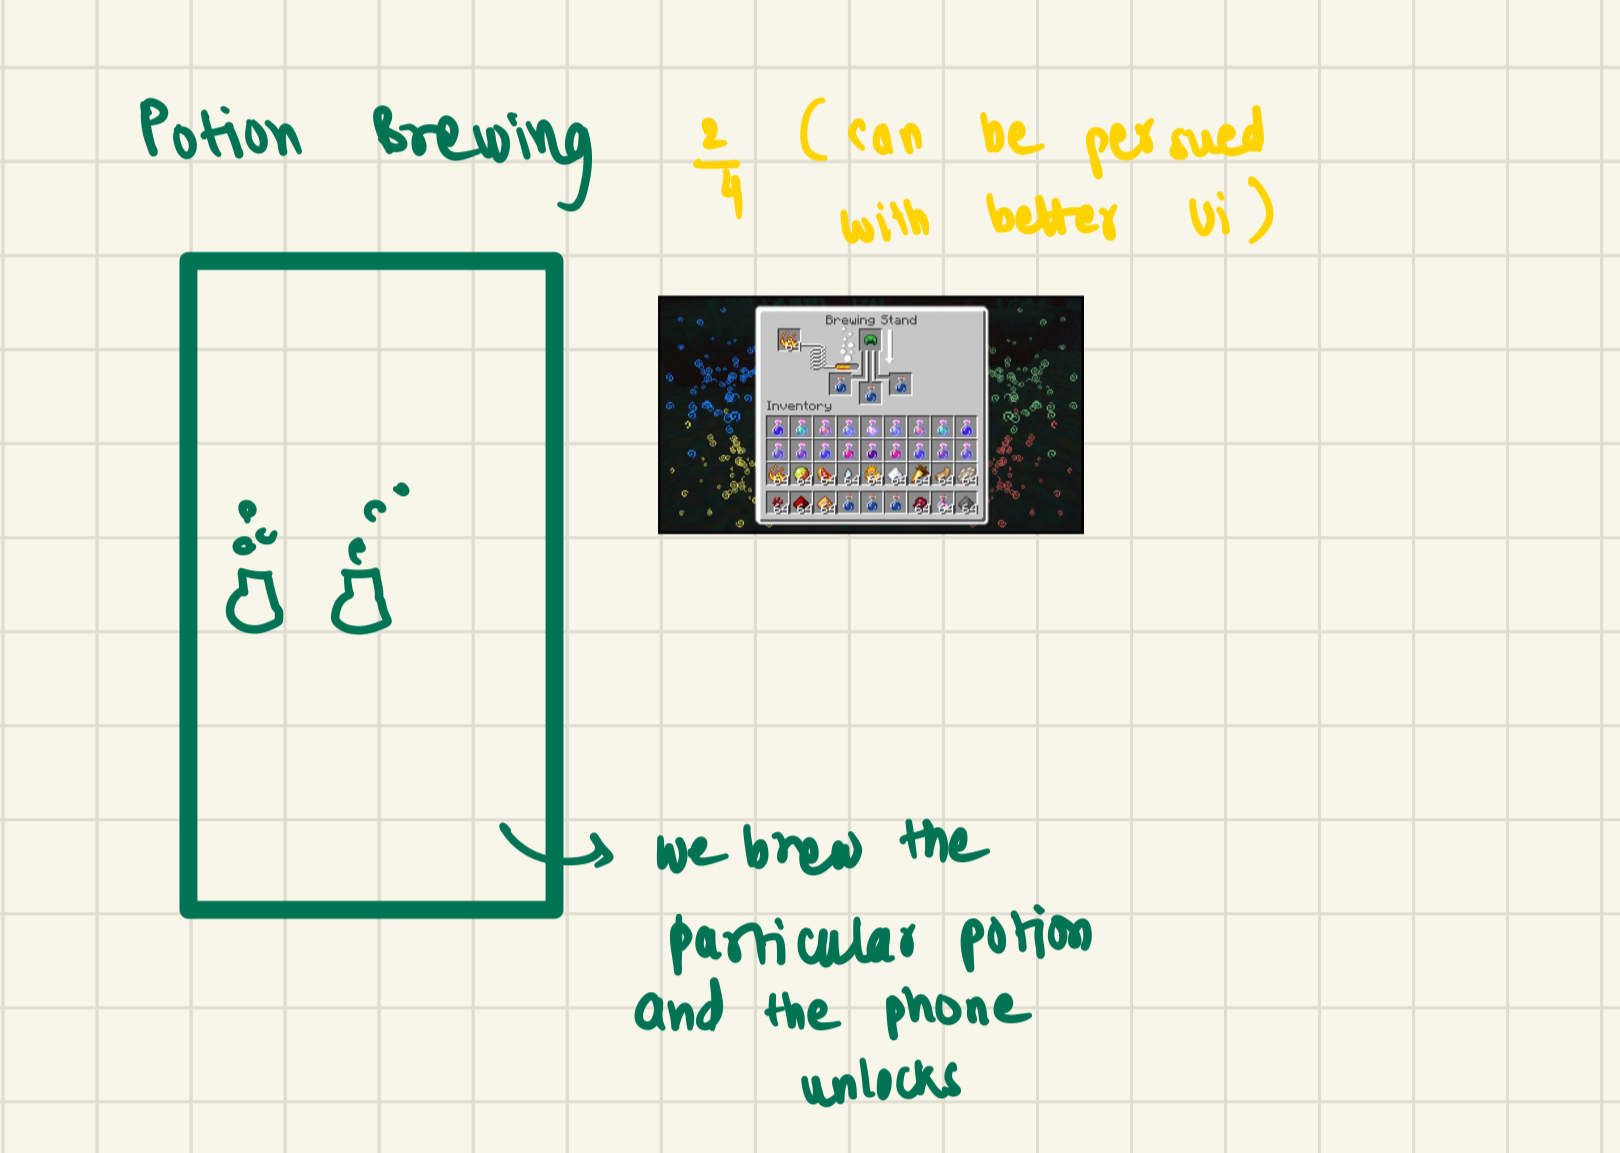 Potion Brewing
2/4 (can be persued
with better Ui)
Brewing Stand
64
Inventory
64 64 64 64 64 64 64 64 64
64 64 64 64 64 64
we brew the
particular potion
and the phone
unlocks